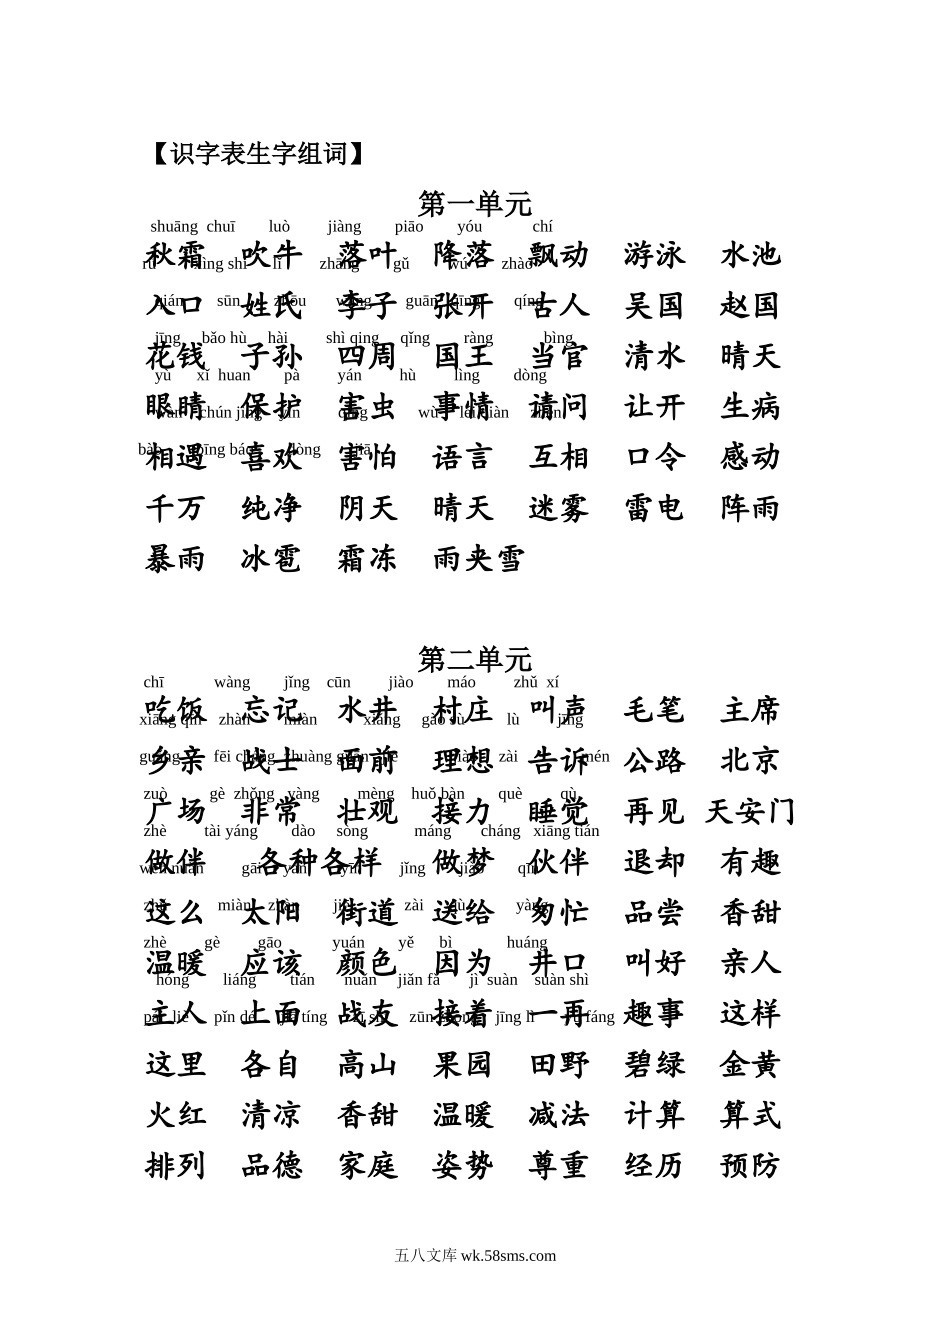 【识字表生字组词】
第一单元
shuāng chuī luò jiàng piāo yóu chí
秋霜 吹牛 落叶 降落 飘动 游泳 水池
rù xìng shì lǐ zhāng gǔ wú zhào
入口 姓氏 李子 张开 古人 吴国 赵国
qián sūn zhōu wáng guān qīng qíng
花钱 子孙 四周 国王 当官 清水 晴天
jīng bǎo hù hài shì qing qǐng ràng bìng
眼睛 保护 害虫 事情 请问 让开 生病
yù xǐ huan pà yán hù lìng dòng
相遇 喜欢 害怕 语言 互相 口令 感动
wàn chún jìng yīn qíng wù léi diàn zhèn
千万 纯净 阴天 晴天 迷雾 雷电 阵雨
bào bīng báo dòng jiā
暴雨 冰雹 霜冻 雨夹雪
第二单元
chī wàng jǐng cūn jiào máo zhǔ xí
吃饭 忘记 水井 村庄 叫声 毛笔 主席
xiāng qīn zhàn miàn xiǎng gào sù lù jīng
乡亲 战士 面前 理想 告诉 公路 北京
guǎng fēi cháng zhuàng guān jiē jiào zài mén
广场 非常 壮观 接力 睡觉 再见 天安门
zuò gè zhǒng yàng mèng huǒ bàn què qù
做伴 各种各样 做梦 伙伴 退却 有趣
zhè tài yáng dào sòng máng cháng xiāng tián
这么 太阳 街道 送给 匆忙 品尝 香甜
wēn nuǎn gāi yán yīn jǐng jiào qīn
温暖 应该 颜色 因为 井口 叫好 亲人
zhǔ miàn zhàn jiē zài qù yàng
主人 上面 战友 接着 一再 趣事 这样
zhè gè gāo yuán yě bì huáng
这里 各自 高山 果园 田野 碧绿 金黄
hóng liáng tián nuǎn jiǎn fǎ jì suàn suàn shì
火红 清凉 香甜 温暖 减法 计算 算式
pái liè pǐn dé jiā tíng zī shì zūn zhòng jīng lì yù fáng
排列 品德 家庭 姿势 尊重 经历 预防
五八文库 wk.58sms.com